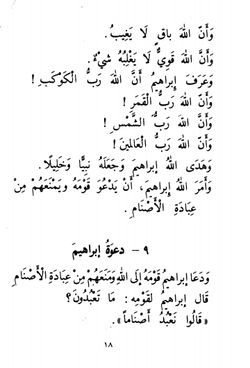 وَأَنَّ اللهَ بَاقٍ لَا يَغِيبُ.
وَأَنَّ اللهَ قَوِيٌّ لَا يَغْلِبُهُ شَيْءٌ.
وَعَرَفَ إِبْرَاهِيمُ أَنَّ اللهَ رَبُّ الْكَوْكَبِ!
وَأَنَّ اللهَ رَبُّ الْقَمَرِ!
وَأَنَّ اللهَ رَبُّ الشَّمْسِ!
وَأَنَّ اللهَ رَبُّ الْعَالَمِينَ!
وَهَدَى اللهُ إِبْرَاهِيمَ وَجَعَلَهُ نَبِيًّا وَخَلِيلًا.
وَأَمَرَ اللهُ إِبْرَاهِيمَ، أَنْ يَدْعُوَ قَوْمَهُ وَيَمْنَعَهُمْ مِنْ
عِبَادَةِ الْأَصْنَامِ.
٩ - دَعوَةُ إِبراهيمَ
وَدَعَا إِبْرَاهِيمُ قَوْمَهُ إِلَى اللهِ وَمَنَعَهُمْ مِنْ عِبَادَةِ الْأَصْنَامِ
قَالَ إِبْرَاهِيمُ لِقَوْمِهِ: مَا تَعْبُدُونَ؟
«قَالُوا نَعْبُدُ أَصْنَاماً».
١٨